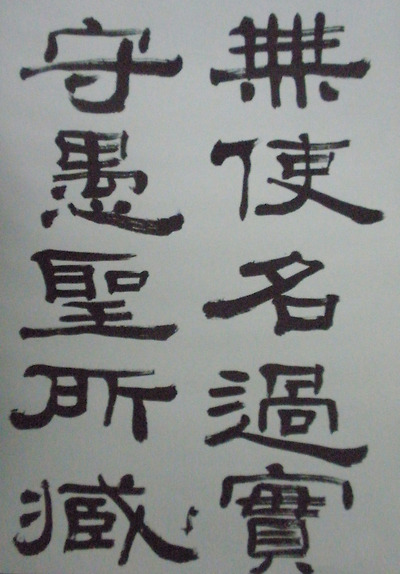 無使名過實
守愚聖所臧